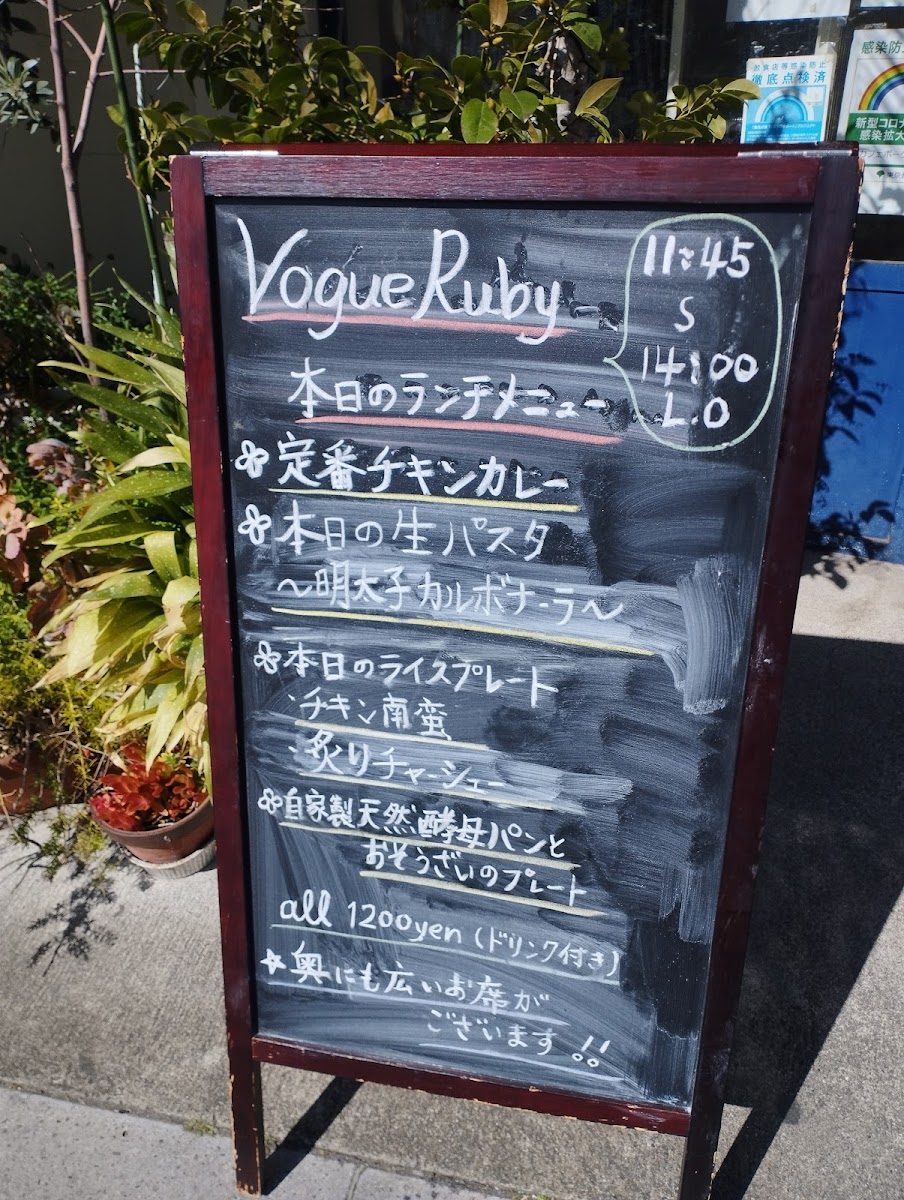 Vogue Ruby
11:45
S
14:00
L.O
本日のランチメニュー
定番チキンカレー
本日の生パスタ
～明太子カルボナーラ～
本日のライスプレート
・チキン南蛮
・炙りチャーシュー
自家製天然酵母パンと
おそうざいのプレート
all 1200yen (ドリンク付き)
★奥にも広いお席が
ございます!!
徹底点検済
感染防
新型コロナ
感染拡大